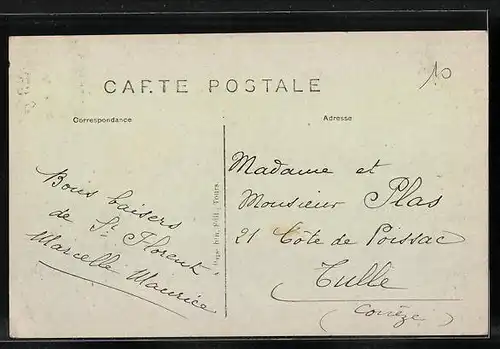 CARTE POSTALE
10
Correspondance
Adresse
Bons baisers
de St Florent
Marcelle Maurice
Édit. Tours
Madame et
Monsieur Plas
21 Côte de Poissac
Tulle
(Corrèze)